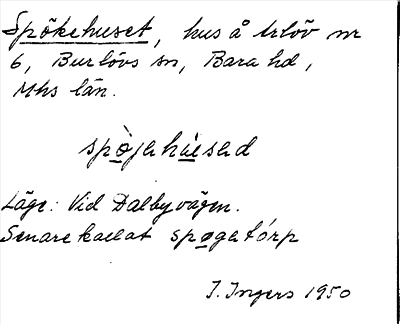 Spökehuset, hus å Arlöv nr
6, Burlövs sn, Bara hd,
Mhs län.
spø̀jahúsad
Läge: Vid Dalbyvägen.
Senare kallat spøgatórp
I. Ingers 1950